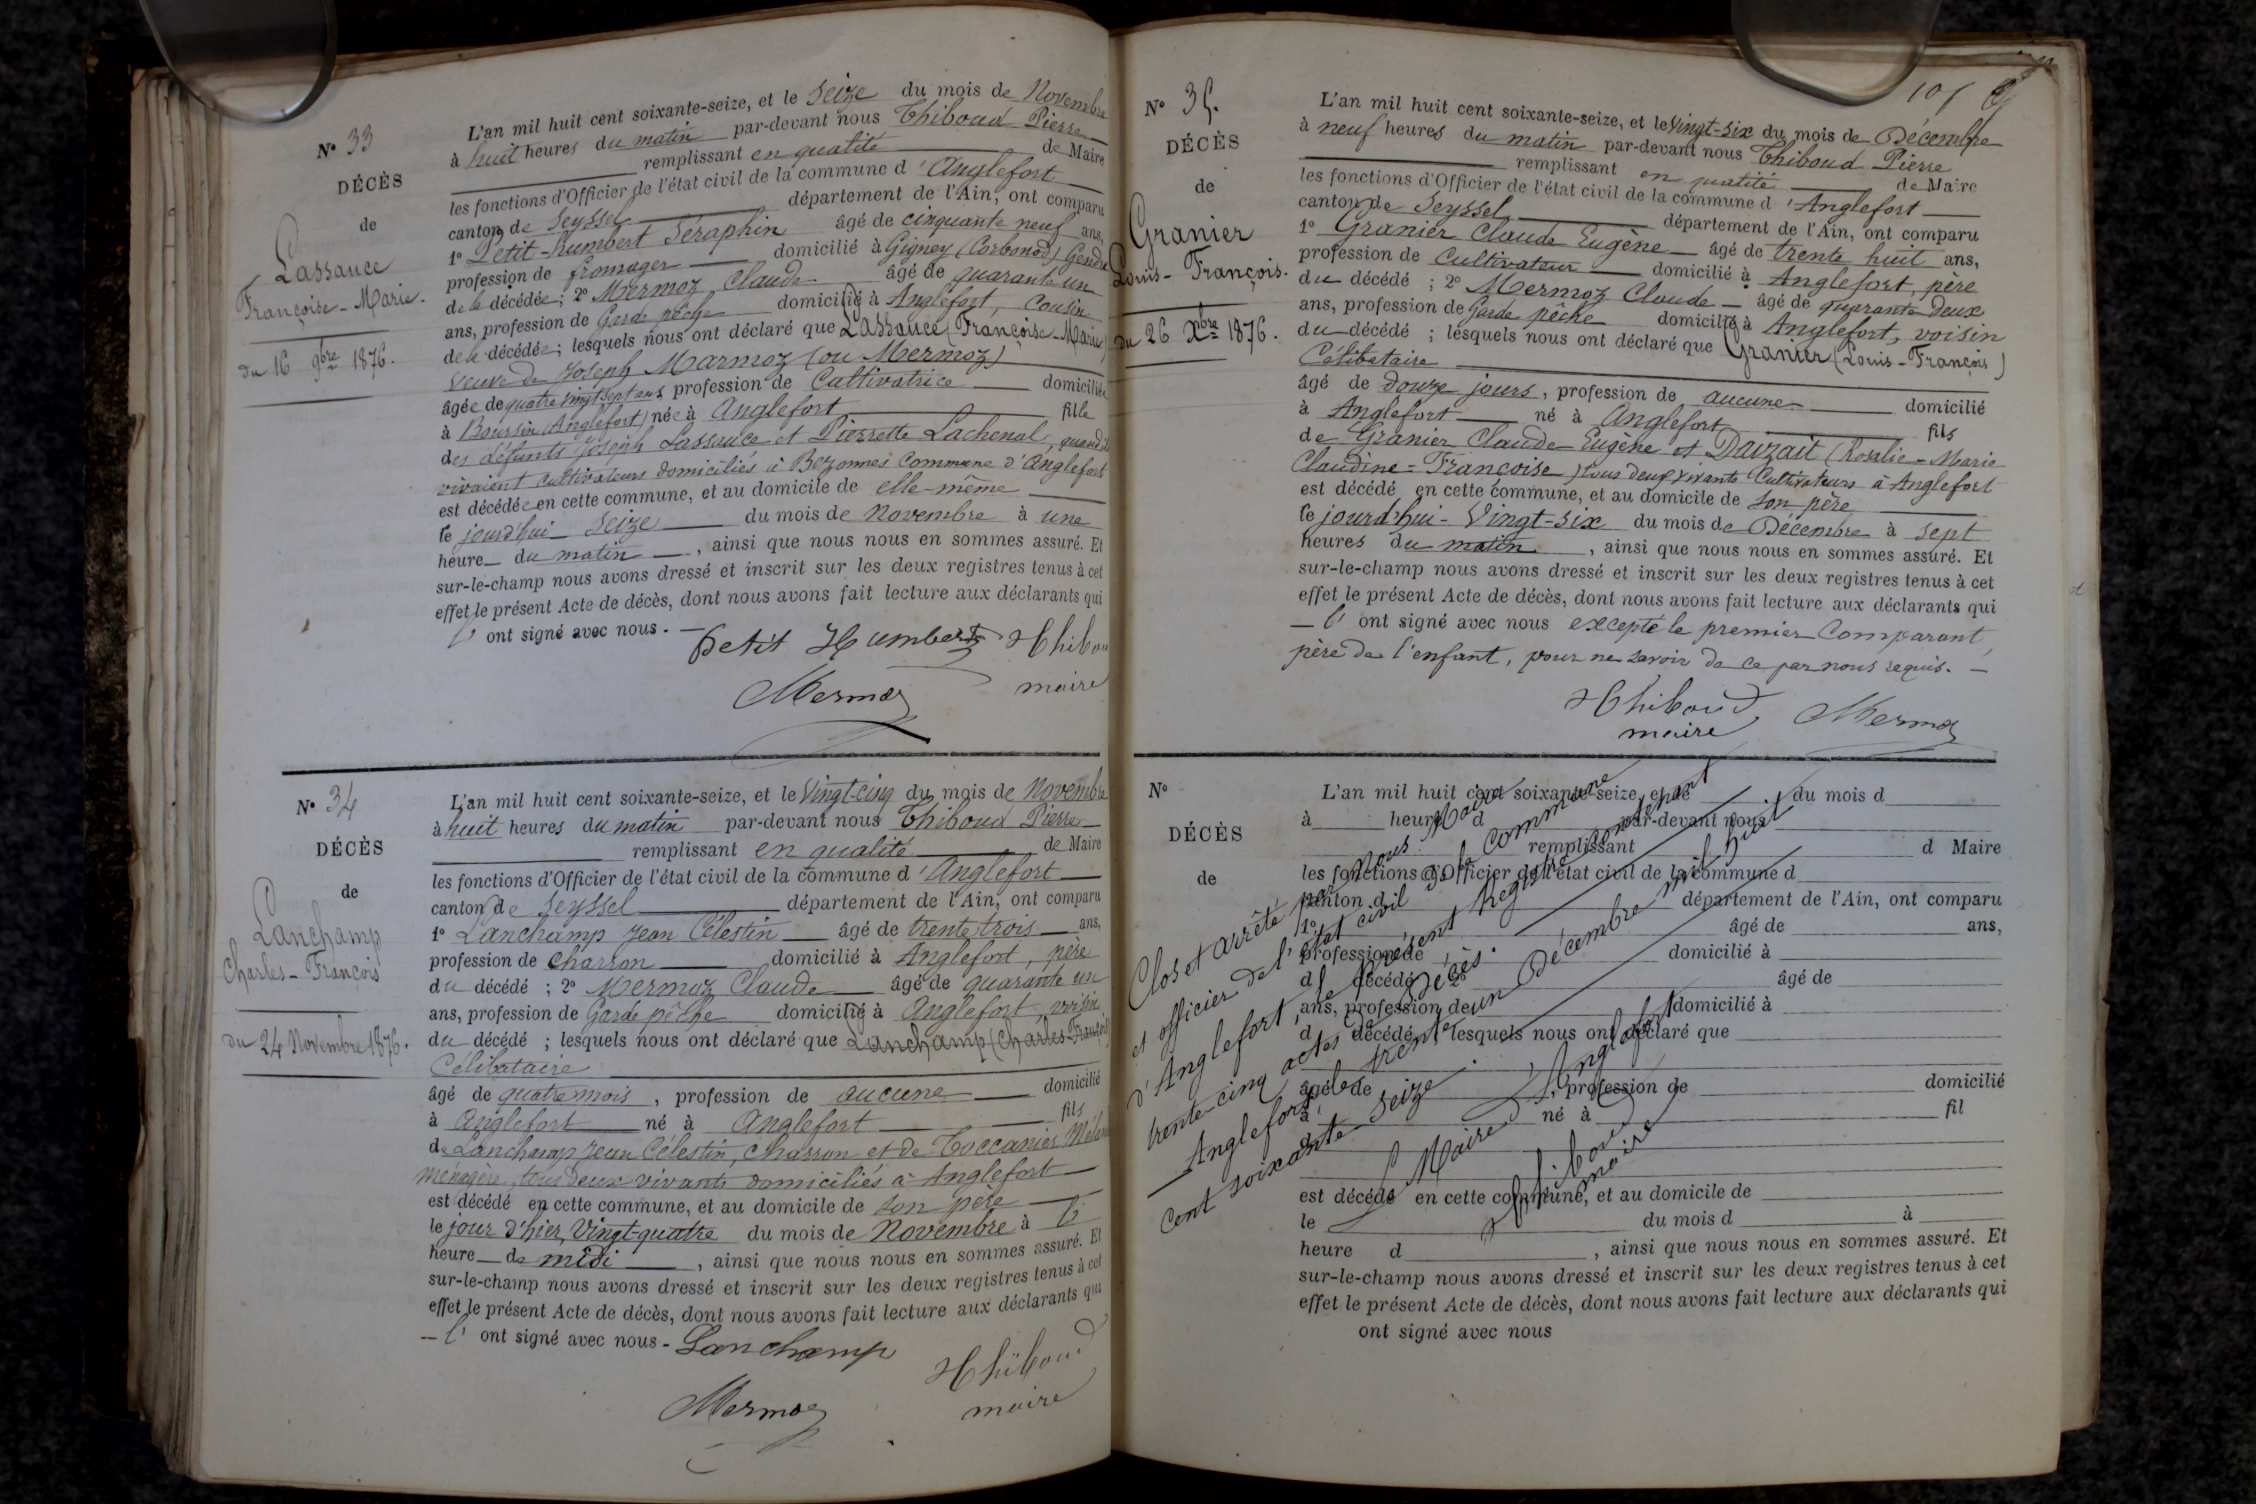 N° 33
DÉCÈS
de
Lassauce
Françoise-Marie.
du 16 9bre 1876.
L'an mil huit cent soixante-seize, et le seize du mois de Novembre
à huit heures du matin par-devant nous Thiboud Pierre
remplissant en qualité de Maire
les fonctions d'Officier de l'état civil de la commune d'Anglefort
canton de Seyssel département de l'Ain, ont comparu
1° Petit-humbert Séraphin âgé de cinquante neuf ans,
profession de fromager domicilié à Gigney (Corbonod) Gendre
de la décédée; 2° Mermoz Claude âgé de quarante un
ans, profession de Garde pêche domicilié à Anglefort, Cousin
de la décédée; lesquels nous ont déclaré que Lassauce (Françoise-Marie)
veuve de Joseph Marmoz (ou Mermoz)
âgée de quatre vingt sept ans, profession de Cultivatrice domiciliée
à Boursin (Anglefort) née à Anglefort fille
des défunts Joseph Lassauce et Pierrette Lachenal, quand ils
vivaient cultivateurs domiciliés à Bezonnes Commune d'Anglefort
est décédée en cette commune, et au domicile de elle-même
le jourd'hui seize du mois de Novembre à une
heure du matin, ainsi que nous nous en sommes assuré. Et
sur-le-champ nous avons dressé et inscrit sur les deux registres tenus à cet
effet le présent Acte de décès, dont nous avons fait lecture aux déclarants qui
l' ont signé avec nous. —
Petit Humbert Thiboud
Mermoz maire
N° 34
DÉCÈS
de
Lanchamp
Charles-François
du 24 Novembre 1876.
L'an mil huit cent soixante-seize, et le Vingt-cinq du mois de Novembre
à huit heures du matin par-devant nous Thiboud Pierre
remplissant en qualité de Maire
les fonctions d'Officier de l'état civil de la commune d'Anglefort
canton de Seyssel département de l'Ain, ont comparu
1° Lanchamp Jean Célestin âgé de trente trois ans,
profession de charron domicilié à Anglefort, père
du décédé; 2° Mermoz Claude âgé de quarante un
ans, profession de Garde pêche domicilié à Anglefort, voisin
du décédé; lesquels nous ont déclaré que Lanchamp (Charles-François)
Célibataire
âgé de quatre mois, profession de aucune domicilié
à Anglefort né à Anglefort fils
de Lanchamp Jean Célestin, charron et de Toccanier
ménagère, tous deux vivants domiciliés à Anglefort
est décédé en cette commune, et au domicile de son père
le jour d'hier, Vingt-quatre du mois de Novembre à l'
heure de midi, ainsi que nous nous en sommes assuré. Et
sur-le-champ nous avons dressé et inscrit sur les deux registres tenus à cet
effet le présent Acte de décès, dont nous avons fait lecture aux déclarants qui
— l' ont signé avec nous - Lanchamp
Thiboud
Mermoz maire
107
N° 35.
DÉCÈS
de
Granier
Louis-François.
du 26 Xbre 1876.
L'an mil huit cent soixante-seize, et le Vingt-six du mois de Décembre
à neuf heures du matin par-devant nous Thiboud Pierre
remplissant en qualité de Maire
les fonctions d'Officier de l'état civil de la commune d'Anglefort
canton de Seyssel département de l'Ain, ont comparu
1° Granier Claude Eugène âgé de trente huit ans,
profession de Cultivateur domicilié à Anglefort, père
du décédé; 2° Mermoz Claude âgé de quarante deux
ans, profession de Garde pêche domicilié à Anglefort, voisin
du décédé; lesquels nous ont déclaré que Granier (Louis-François)
Célibataire
âgé de douze jours, profession de aucune domicilié
à Anglefort né à Anglefort fils
de Granier Claude Eugène et Dauzait (Rosalie-Marie
Claudine-Françoise) tous deux vivants Cultivateurs à Anglefort
est décédé en cette commune, et au domicile de son père
le jourd'hui - Vingt-six du mois de Décembre à sept
heures du matin, ainsi que nous nous en sommes assuré. Et
sur-le-champ nous avons dressé et inscrit sur les deux registres tenus à cet
effet le présent Acte de décès, dont nous avons fait lecture aux déclarants qui
— l' ont signé avec nous excepté le premier Comparant,
père de l'enfant, pour ne savoir de ce par nous requis. —
Thiboud Mermoz
maire
N°
DÉCÈS
de
L'an mil huit cent soixante-seize, et le du mois d
à heure d par-devant nous
remplissant d Maire
les fonctions d'Officier de l'état civil de la commune d
canton d département de l'Ain, ont comparu
1° âgé de ans,
profession de domicilié à
d décédé; 2° âgé de
ans, profession de domicilié à
d décédé; lesquels nous ont déclaré que
âgé de, profession de domicilié
à né à fil
d
est décédé en cette commune, et au domicile de
le du mois d à
heure d, ainsi que nous nous en sommes assuré. Et
sur-le-champ nous avons dressé et inscrit sur les deux registres tenus à cet
effet le présent Acte de décès, dont nous avons fait lecture aux déclarants qui
ont signé avec nous
Clos et arrêté par Nous Maire
et officier de l'état civil de la Commune
d'Anglefort, le présent Registre contenant
trente-cinq actes de Décès.
Anglefort, le trente un Décembre mil huit
cent soixante seize.
Le Maire d'Anglefort
Thiboud
maire